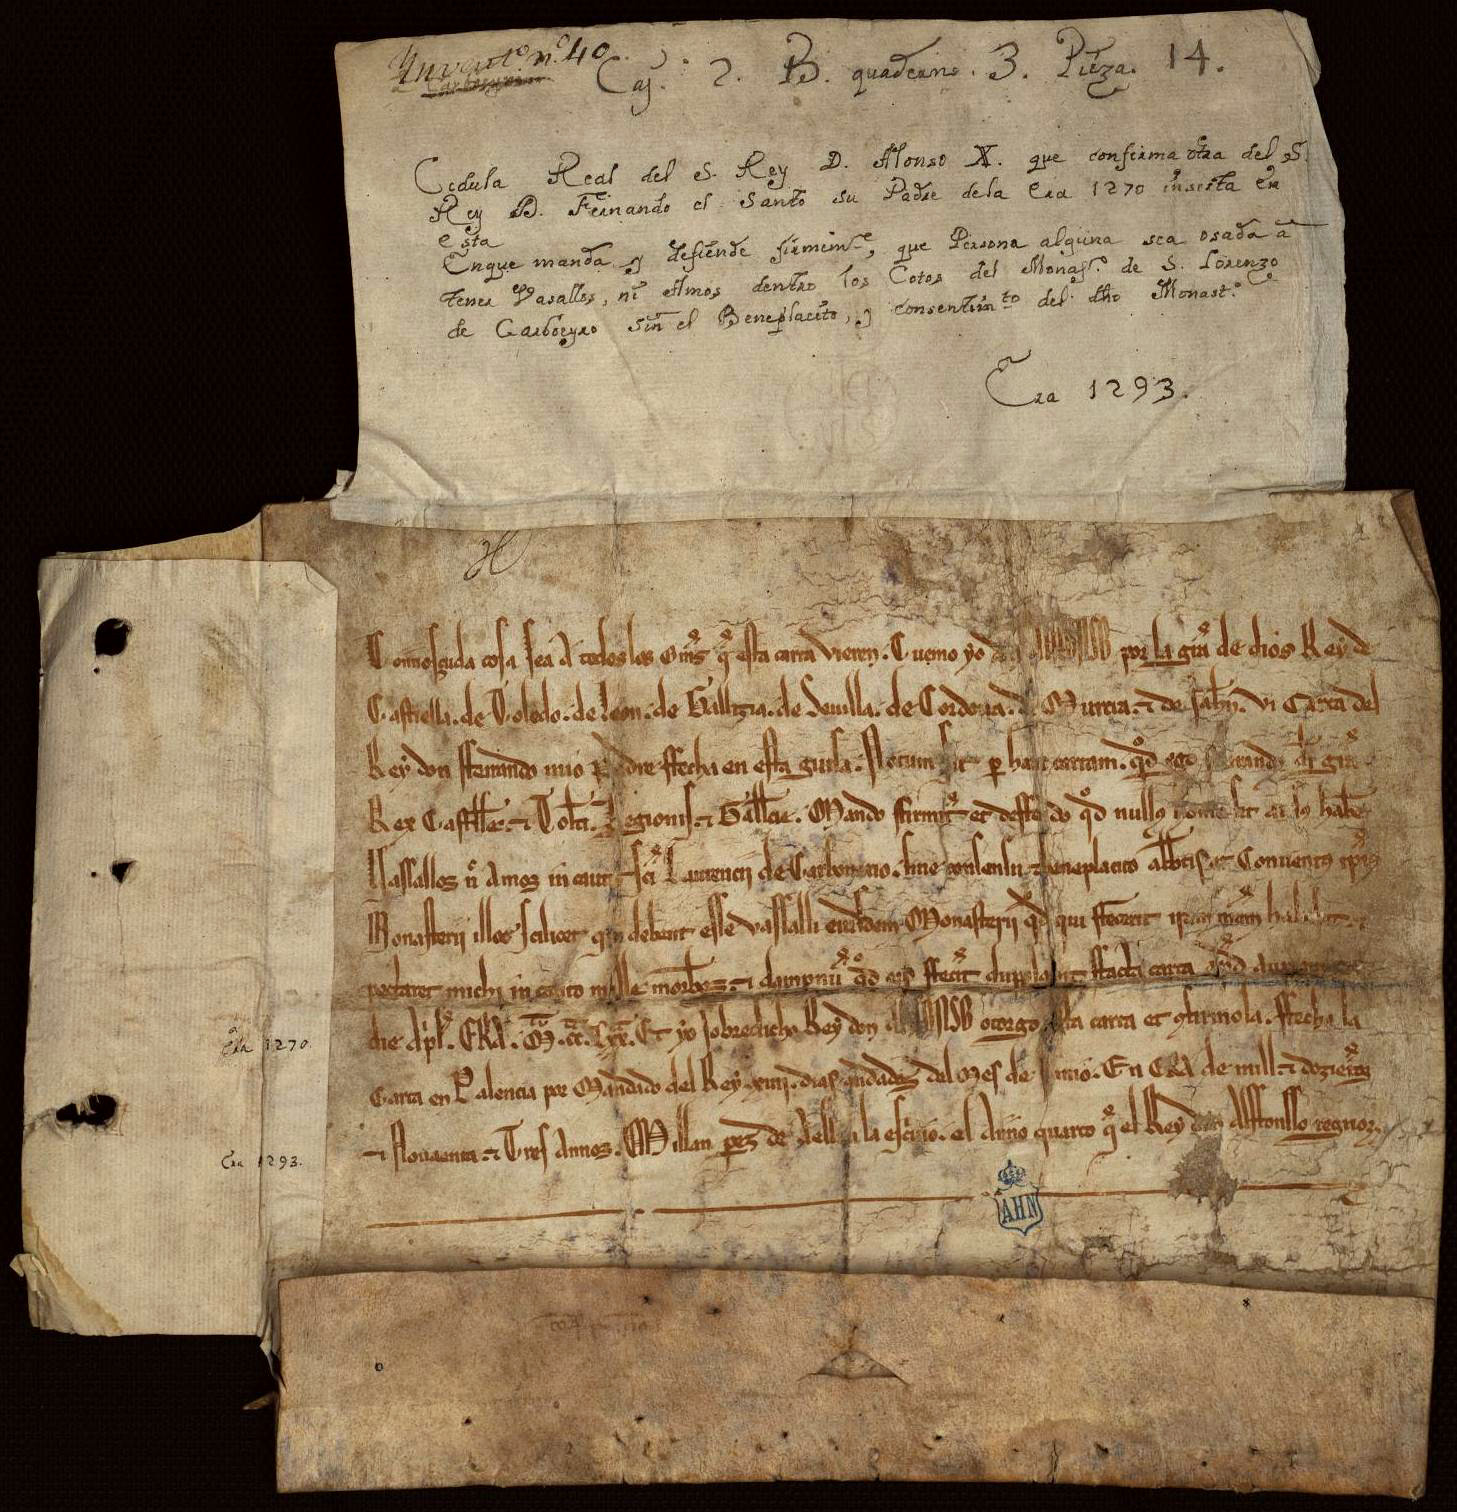 Inventº nº 40
Caj. 2. B. quaderno. 3. Pieza. 14.
Cedula Real del S. Rey D. Alonso X. que confirma otra del S.
Rey D. Fernando el Santo su Padre dela Era 1270 inserta en
esta
Enque manda y defiende firmemte, que Persona alguna sea osada â
tener Vasallos, ni Amos dentro los Cotos del Monastº de S. Lorenzo
de Carboeyro sin el Beneplacito, y consentimto del dho Monastº
Era 1293.
Connosçuda cosa sea A todos los omẽs q̃ esta carta vieren. Cuemo yo don ALFONSO por la gr̃a de dios Rey de
Castiella. de Toledo. de leon. de Gallizia. de Seuilla. de Cordoua. de Murcia. ⁊ de Jahen. vi Carta del
Rey don ffernando mio padre ffecha en esta guisa. Notum sit per hanc cartam. qd ego dei gr̃a
Rex Castelle. ⁊ Tolti. Legionis. ⁊ Gallecie. Mando ffirmit̃ et deffendo qd nullus
Vassallos nec Amos in cauto sci Laurencij de Carbonario. sine consensu ⁊ beneplacito abbtis et Conventus ipsius
Monasterij illos scilicet qui debent esse vassalli eiusdem Monasterij qd qui ffecerit iram meam habebit. ⁊
pectaret michi in cauto mille morbetz. ⁊ dampnũ qd eis ffecerit duppl ffacta carta
die Apl. ERA. M. CC. LXX. Et yo sobredicho Rey don ALFONSO otorgo esta carta et confirmola. ffecha la
Carta en Palencia por Mandado del Rey. xiiij. dias andados del Mes de Junio. En ERA de mill ⁊ dozientos
⁊ Nouaenta. ⁊ Tres Annos. Millan perez de Aellon la escriuio. el Anno quarto q̃ el Rey don Alffonsso regno.
Era 1270.
Era 1293.
AHN